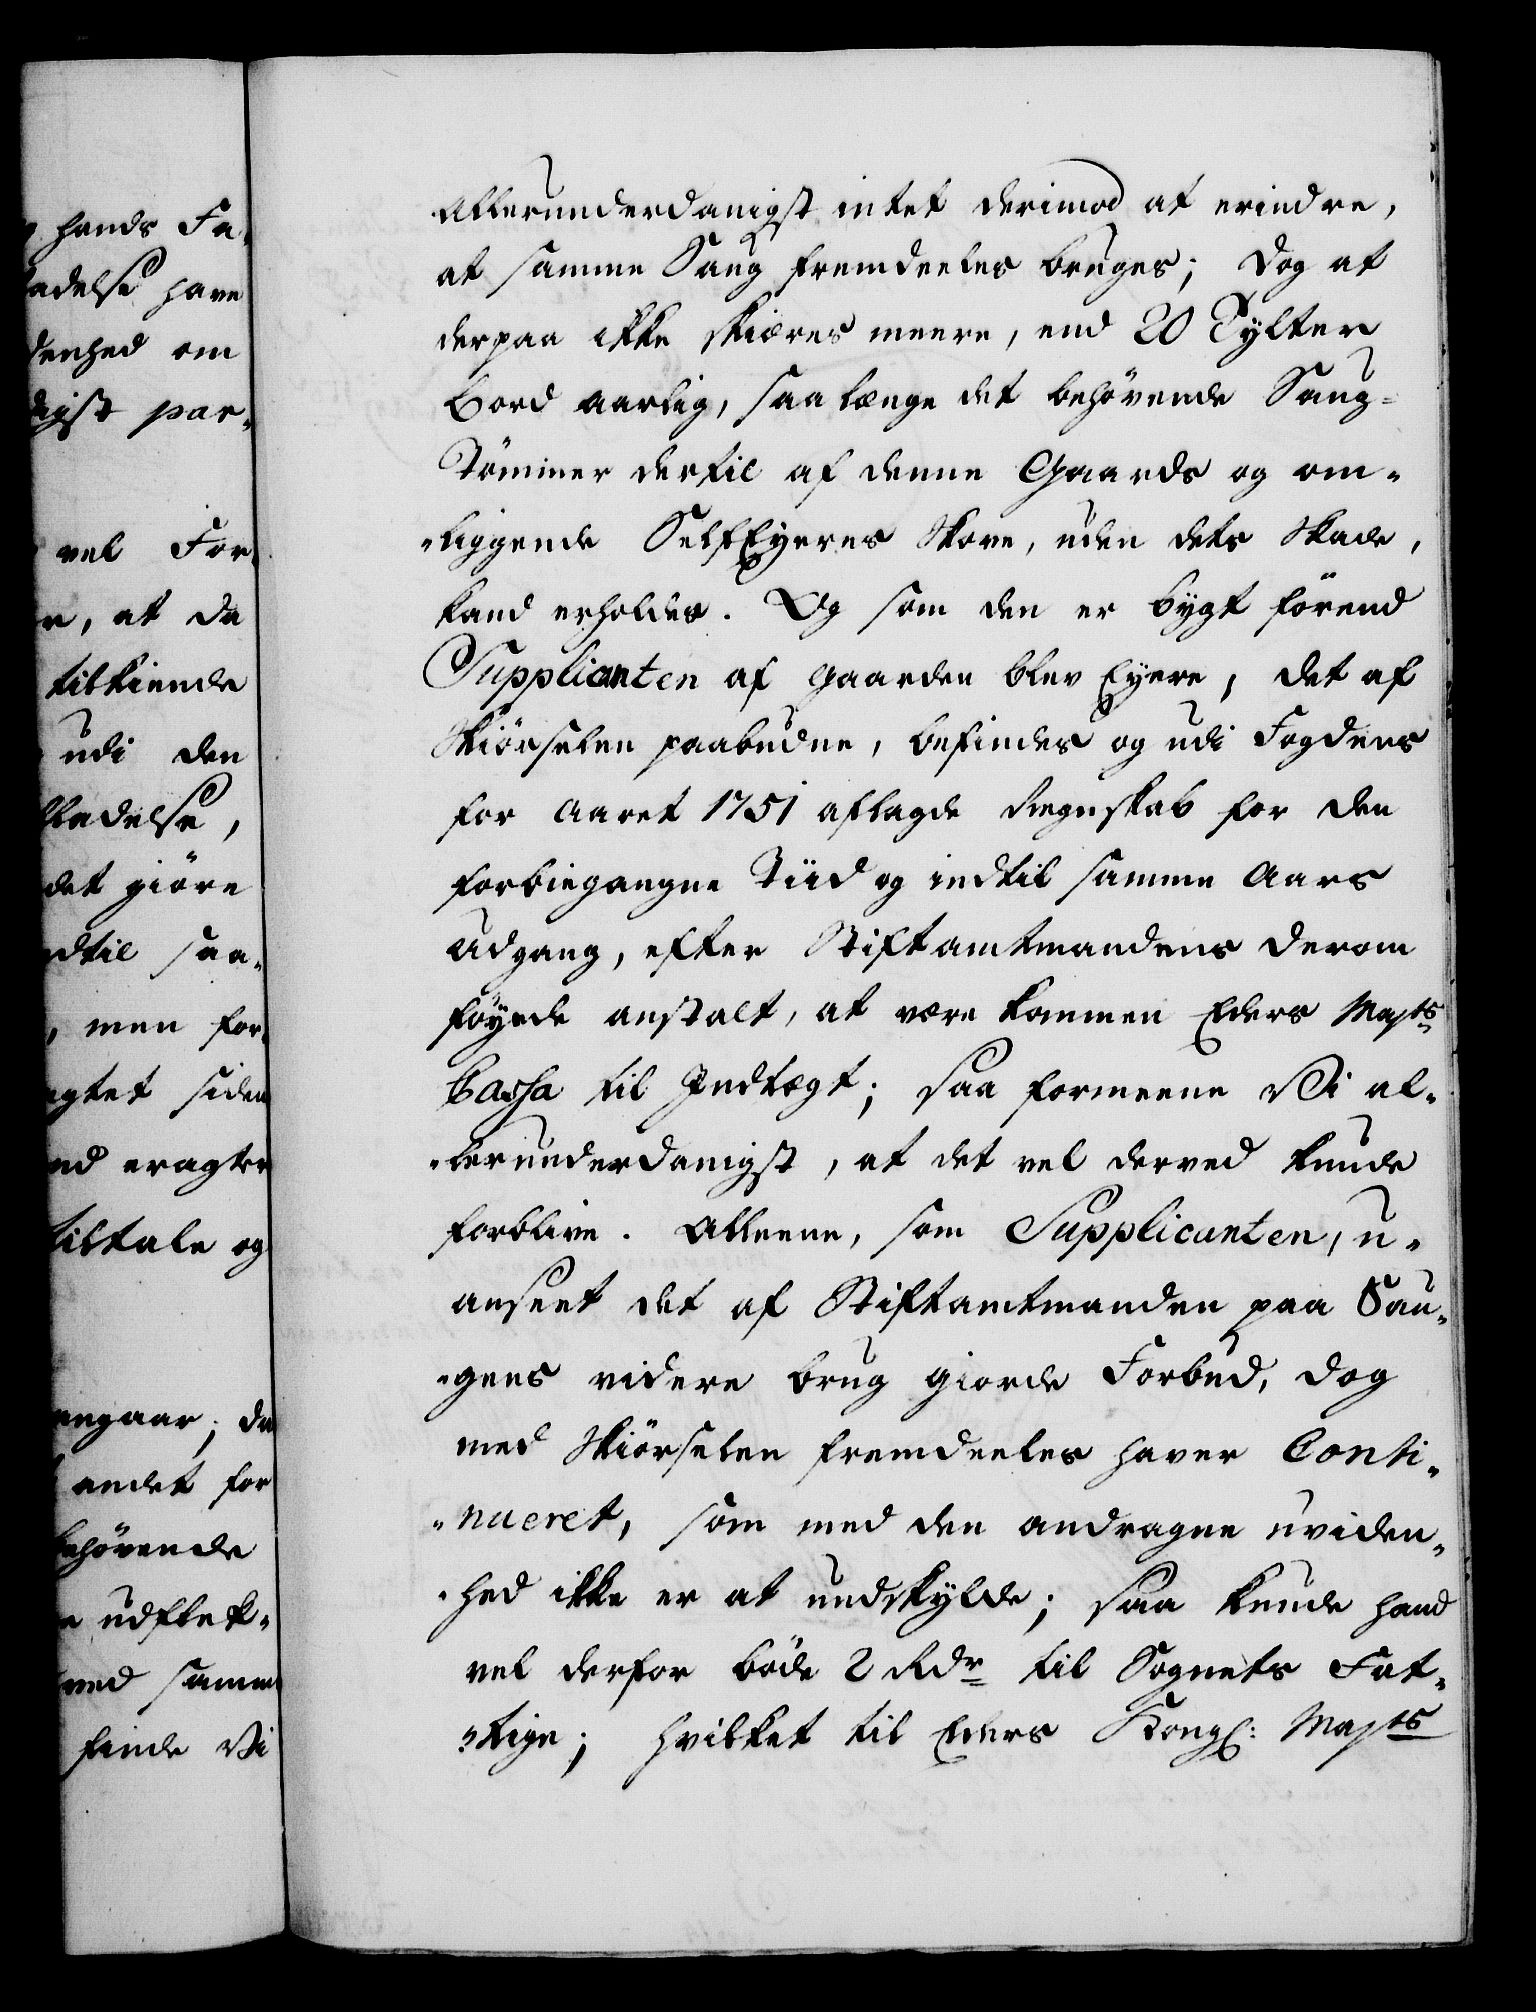 hands Fa-
ladelse have
denhed om
digst par-
vel For-
at da
tilkiende
udi den
ladelse,
det giöre
dtil saa-
men for-
agtet siden
eragter
tiltale og
engaar; da
andet for
behövende
udflek-
ved samme
finde Vi
Allerunderdanigst intet derimod at erindre,
at samme Saug fremdeeles bruges; dog at
derpaa ikke skiæres meere, end 20 Tylter
Bord aarlig, saa længe det behövende Saug-
Tömmer dertil af denne Gaards og om-
-liggende SelfEyeres Skove, uden dets Skade,
kand erholdes. Og som den er bygt förend
Supplicanten af gaarden blev Eyere, det af
Skiörselen paabudne, befindes og udi Fogdens
for Aaret 1751 aflagde Regnskab for den
forbiegangne Tiid og indtil samme Aars
Udgang, efter Stiftamtmandens derom
föyede anstalt, at være kommen Eders Majts
Cassa til Indtægt; saa formeene Vi al-
-lerunderdanigst, at det vel derved kunde
forblive. Alleene, som Supplicanten, u-
anseet det af Stiftamtmanden paa Sau-
-gens videre brug giorde Forbud, dog
med Skiörselen fremdeeles haver Conti-
-nueret, som med den andragne uviden-
-hed ikke er at undskylde; saa kunde hand
vel derfor böde 2 Rdr til Sognets Fat-
-tige; hvilket til Eders Kongl: Majts